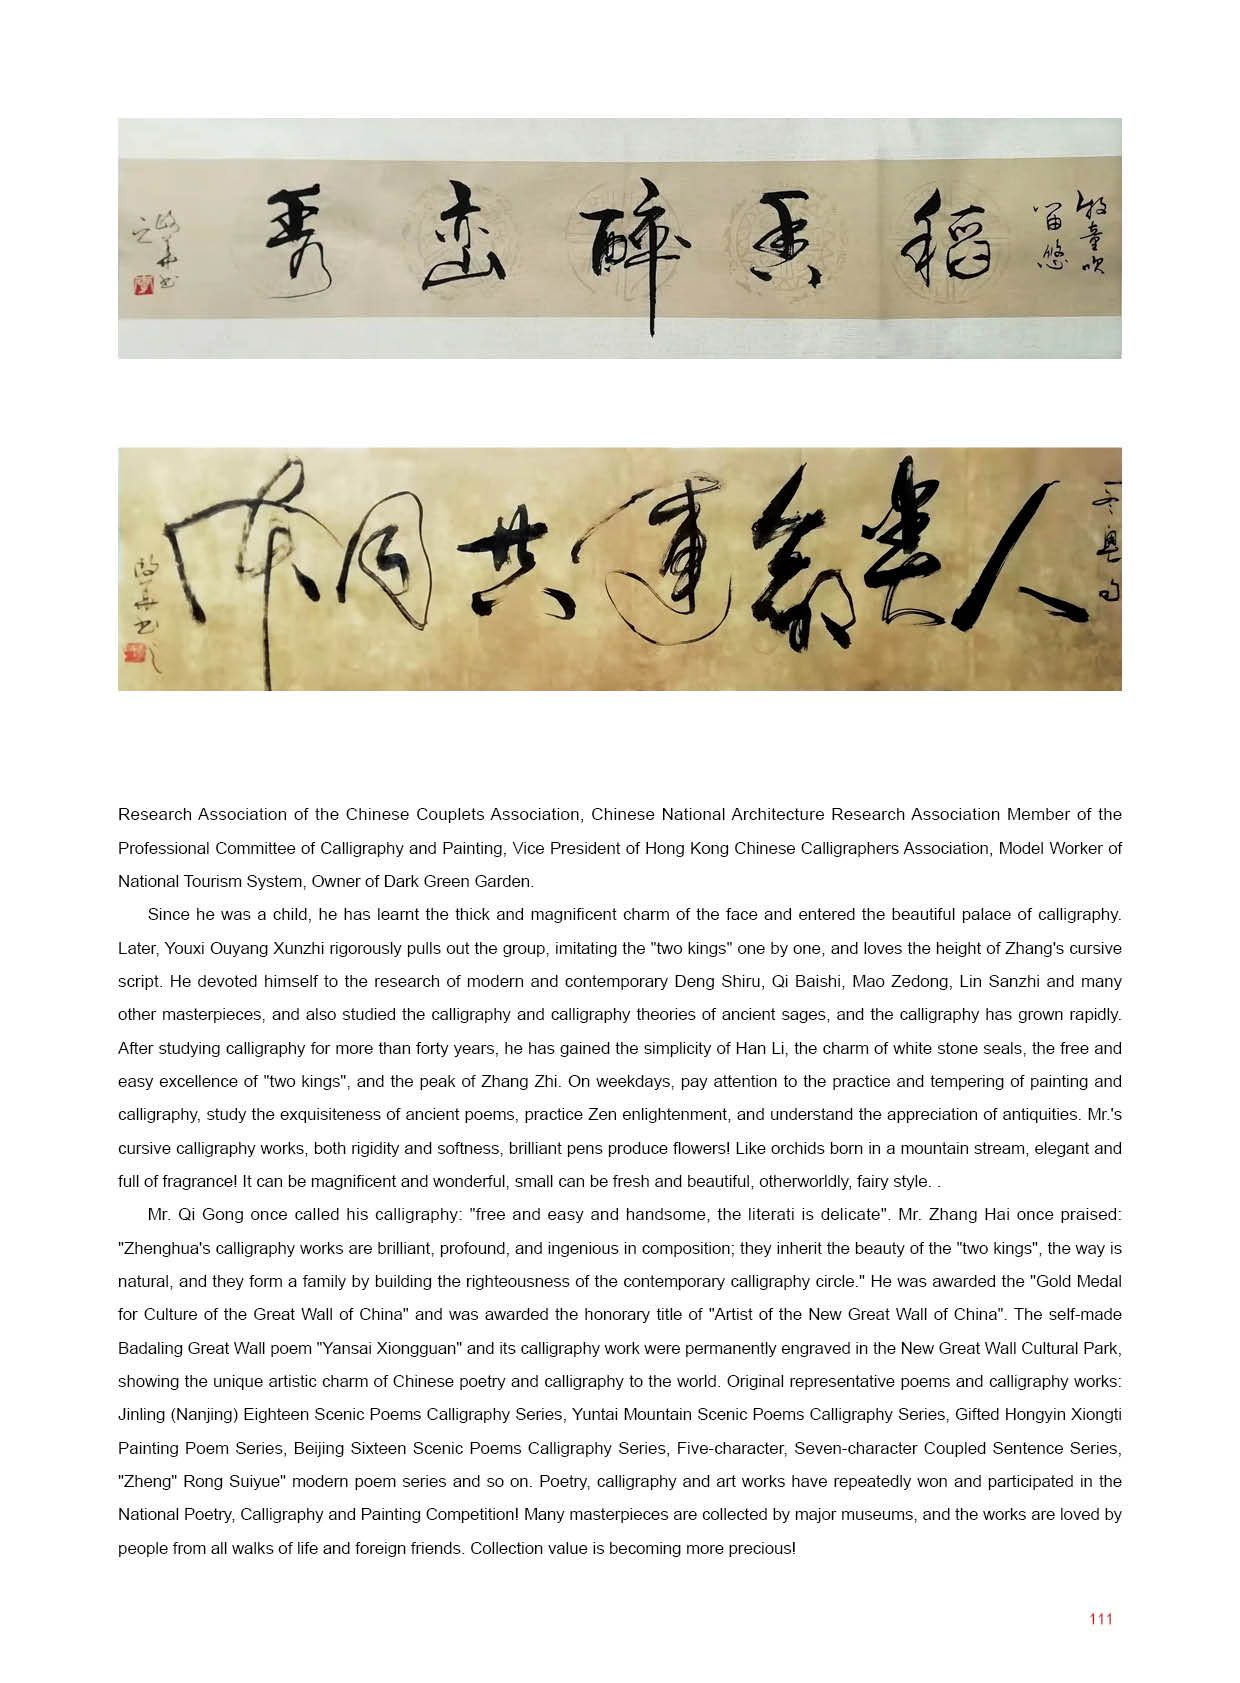 牧童吹
笛悠
稻香醉峦秀
冬奥句
人类命運共同体
Research Association of the Chinese Couplets Association, Chinese National Architecture Research Association Member of the
Professional Committee of Calligraphy and Painting, Vice President of Hong Kong Chinese Calligraphers Association, Model Worker of
National Tourism System, Owner of Dark Green Garden.
Since he was a child, he has learnt the thick and magnificent charm of the face and entered the beautiful palace of calligraphy.
Later, Youxi Ouyang Xunzhi rigorously pulls out the group, imitating the "two kings" one by one, and loves the height of Zhang's cursive
script. He devoted himself to the research of modern and contemporary Deng Shiru, Qi Baishi, Mao Zedong, Lin Sanzhi and many
other masterpieces, and also studied the calligraphy and calligraphy theories of ancient sages, and the calligraphy has grown rapidly.
After studying calligraphy for more than forty years, he has gained the simplicity of Han Li, the charm of white stone seals, the free and
easy excellence of "two kings", and the peak of Zhang Zhi. On weekdays, pay attention to the practice and tempering of painting and
calligraphy, study the exquisiteness of ancient poems, practice Zen enlightenment, and understand the appreciation of antiquities. Mr.'s
cursive calligraphy works, both rigidity and softness, brilliant pens produce flowers! Like orchids born in a mountain stream, elegant and
full of fragrance! It can be magnificent and wonderful, small can be fresh and beautiful, otherworldly, fairy style. .
Mr. Qi Gong once called his calligraphy: "free and easy and handsome, the literati is delicate". Mr. Zhang Hai once praised:
"Zhenghua's calligraphy works are brilliant, profound, and ingenious in composition; they inherit the beauty of the "two kings", the way is
natural, and they form a family by building the righteousness of the contemporary calligraphy circle." He was awarded the "Gold Medal
for Culture of the Great Wall of China" and was awarded the honorary title of "Artist of the New Great Wall of China". The self-made
Badaling Great Wall poem "Yansai Xiongguan" and its calligraphy work were permanently engraved in the New Great Wall Cultural Park,
showing the unique artistic charm of Chinese poetry and calligraphy to the world. Original representative poems and calligraphy works:
Jinling (Nanjing) Eighteen Scenic Poems Calligraphy Series, Yuntai Mountain Scenic Poems Calligraphy Series, Gifted Hongyin Xiongti
Painting Poem Series, Beijing Sixteen Scenic Poems Calligraphy Series, Five-character, Seven-character Coupled Sentence Series,
"Zheng" Rong Suiyue" modern poem series and so on. Poetry, calligraphy and art works have repeatedly won and participated in the
National Poetry, Calligraphy and Painting Competition! Many masterpieces are collected by major museums, and the works are loved by
people from all walks of life and foreign friends. Collection value is becoming more precious!
111